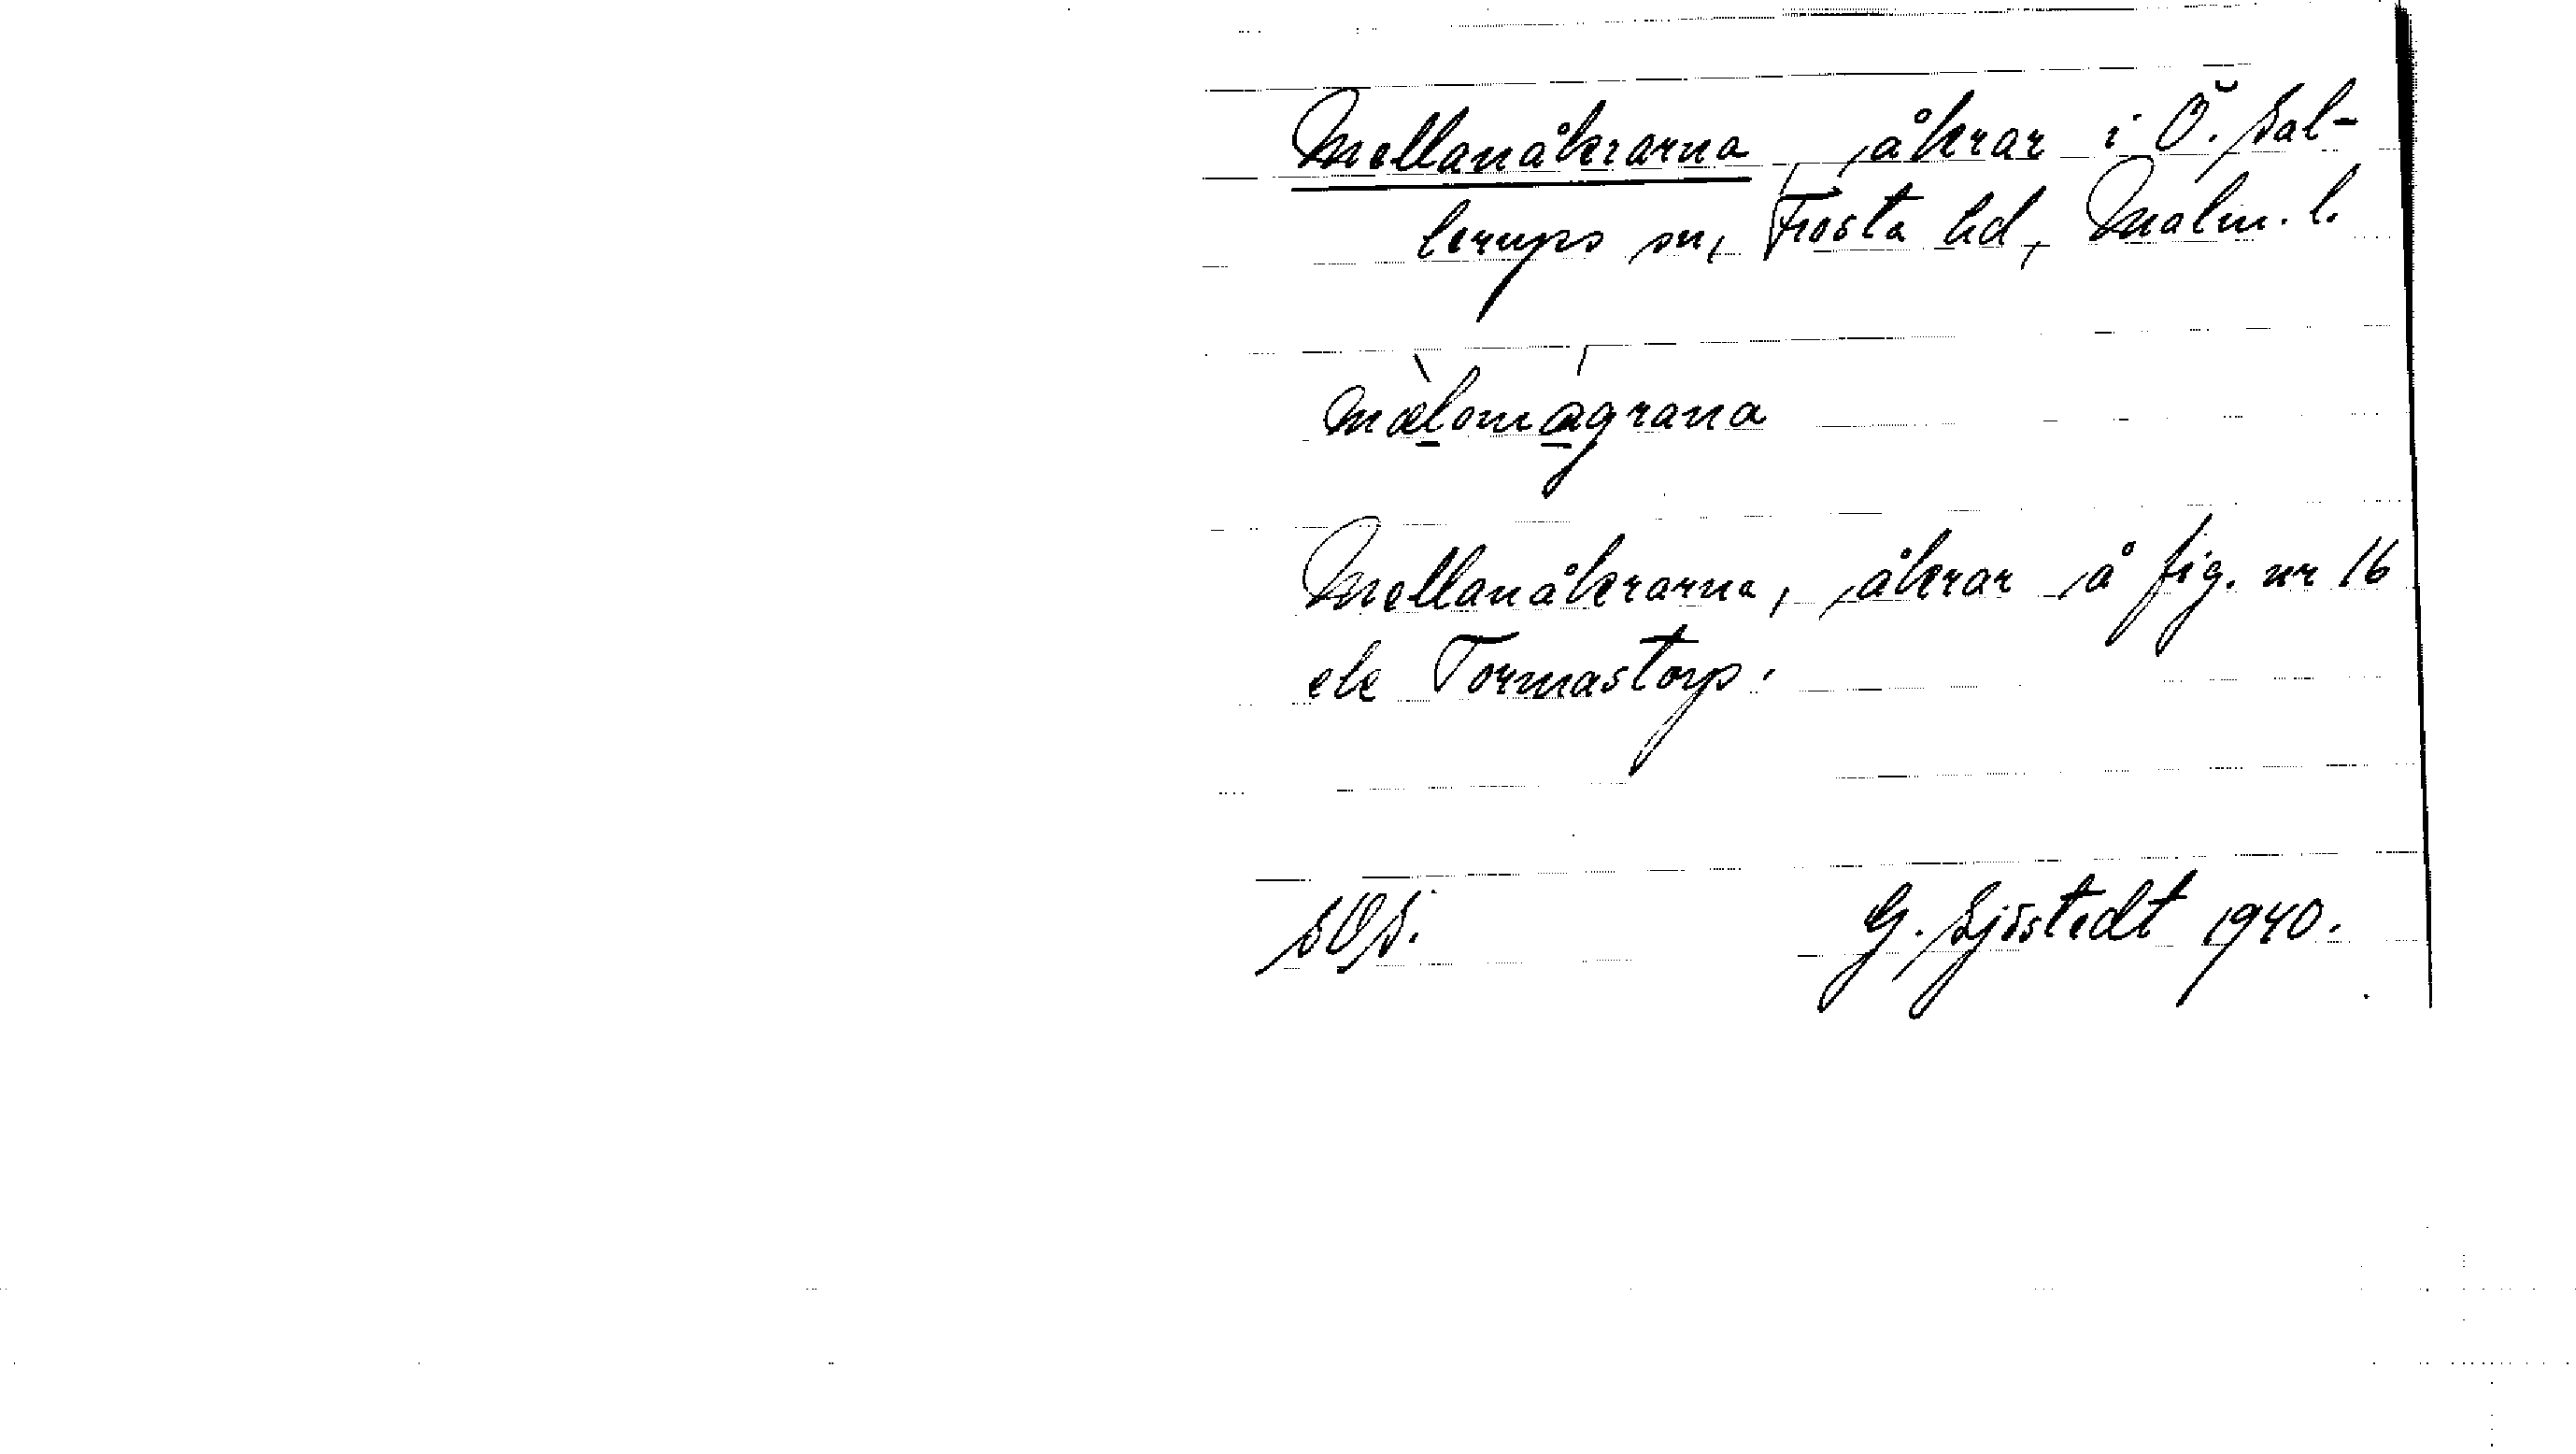 Mellanåkrarna, åkrar i Ö. Sal-
lerups sn, Frosta hd, Malm. l.
mælomågrana
Mellanåkrarna, åkrar å fig. nr 16
ek Tormastorp.
SOS.
G. Sjöstedt 1940.